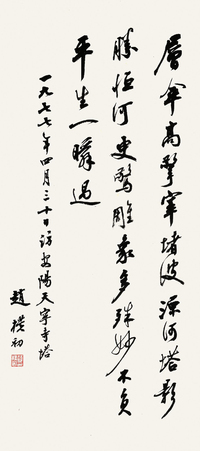 層伞高擎窣堵波洹河塔影
勝恒河更驚雕象多殊妙不負
平生一瞬过
一九七七年四月三十日訪安陽天寧寺塔
趙樸初